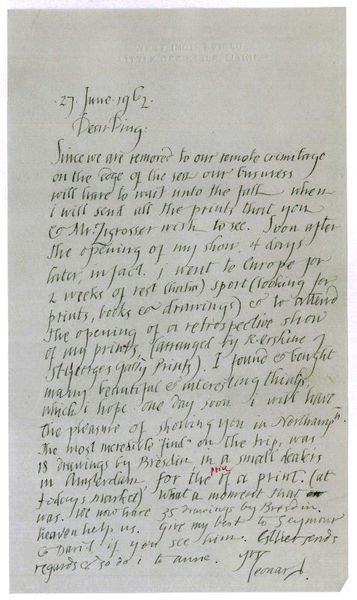 27. June. 1962.
Dear Ping:
Since we are removed to our remote ermitage
on the edge of the sea our business
will have to wait until the fall when
i will send all the prints that you
& Mr. Zigrosser wish to see. Soon after
the opening of my show, 4 days
later, in fact. i went to Europe for
2 weeks of rest (haha) sport (looking for
prints, books & drawings) & to attend
the opening of a retrospective show
of my prints (arranged by R. erskine of
St Georges Gally Prints). I found & bought
many beautiful & interesting things,
which i hope one day soon i will have
the pleasure of showing you in Northampn.
The most incredible "find" on the trip, was
18 drawings by Bresdin in a small dealers
in Amsterdam for the price of a print. (at
todays market) What a moment that
was. We now have 35 drawings by Bresdin.
heaven help us. Give my best to Seymour
& David if you see him. Esther sends
regards & so do i to anne. yrs
Leonard.